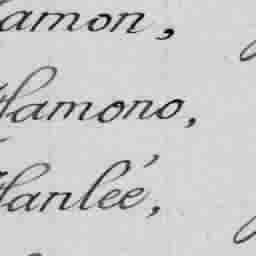 amon,
Hamono,
Hanlée,